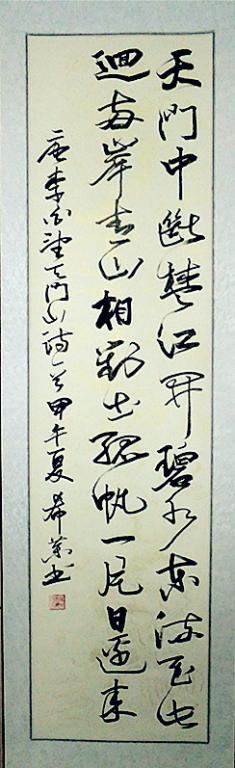 天門中斷楚江開碧水東流至此
迴兩岸青山相對出孤帆一片日邊來
唐李白望天門山詩一首甲午夏希荣书